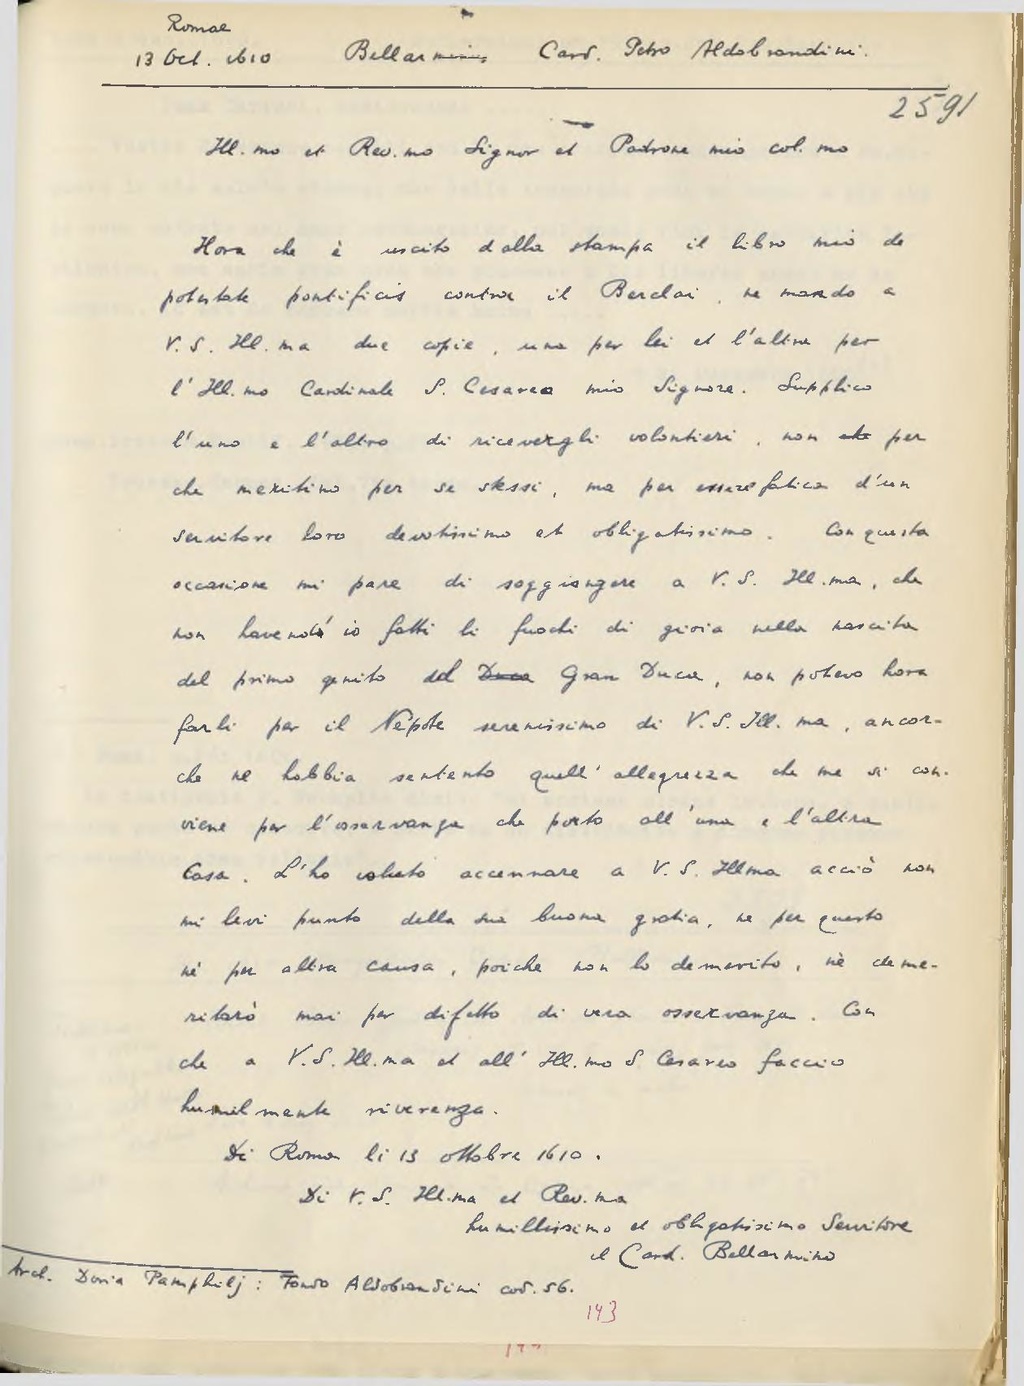 Romae
13 Oct. 1610 Bellarminus Card. Petro Aldobrandini.
2591
Ill.mo et Rev.mo Signor et Padrone mio col.mo
Hora che è uscito dalla stampa il libro mio de
potestate pontificis contra il Berclai, ne mando a
V. S. Ill.ma due copie, una per lei et l'altra per
l'Ill.mo Cardinale S. Cesareo mio Signore. Supplico
l'uno e l'altro di ricevergli volontieri, non che per
che meritino per se stessi, ma per essere fatica d'un
servitore loro devotissimo et obligatissimo. Con questa
occasione mi pare di soggiongere a V. S. Ill.ma, che
non havendo io fatti li fuochi di gioia nella nascita
del primo genito del Duca Gran Duca, non potevo hora
farli per il Nepote serenissimo di V. S. Ill.ma, ancor-
che ne habbia sentento quell' allegrezza che me si con-
viene per l'osservanza che porto all'una e l'altra
Casa. L'ho voluto accennare a V. S. Ill.ma acciò non
mi levi punto della sua buona gratia, ne per questo
nè per altra causa, poiche non lo demerito, nè deme-
ritarò mai per difetto di vera osservanza. Con
che a V. S. Ill.ma et all' Ill.mo S Cesareo faccio
humilmente riverenza.
Di Roma li 13 ottobre 1610.
Di V. S. Ill.ma et Rev.ma
humillissimo et obligatissimo Servitore
il Card. Bellarmino
Arch. Doria Pamphilj: Fondo Aldobrandini cod. 56.
143